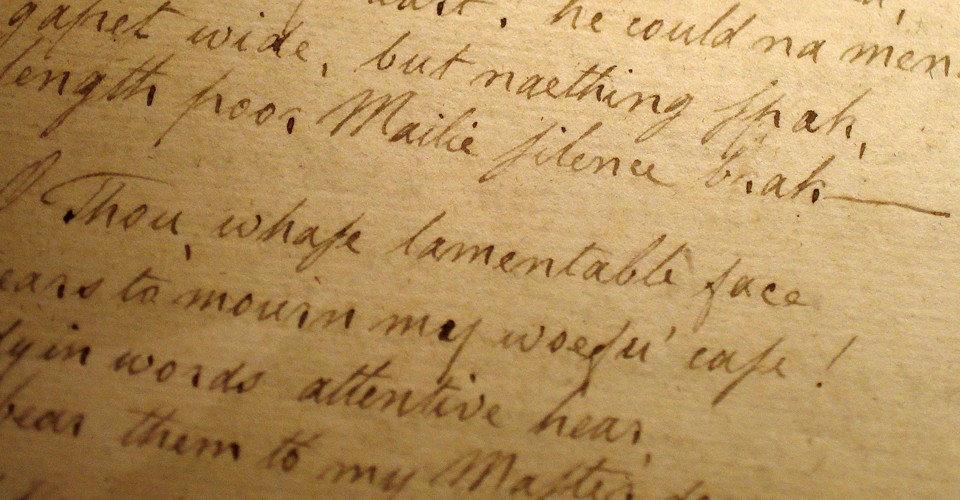 he could na men
gapet wide, but naething spak,
length poor Mailie silence brak—
O Thou, whase lamentable face
ears to mourn my woefu' case!
dyin words attentive hear,
bear them to my Master